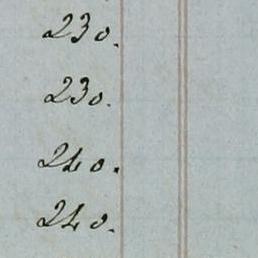 230.
230.
240.
240.